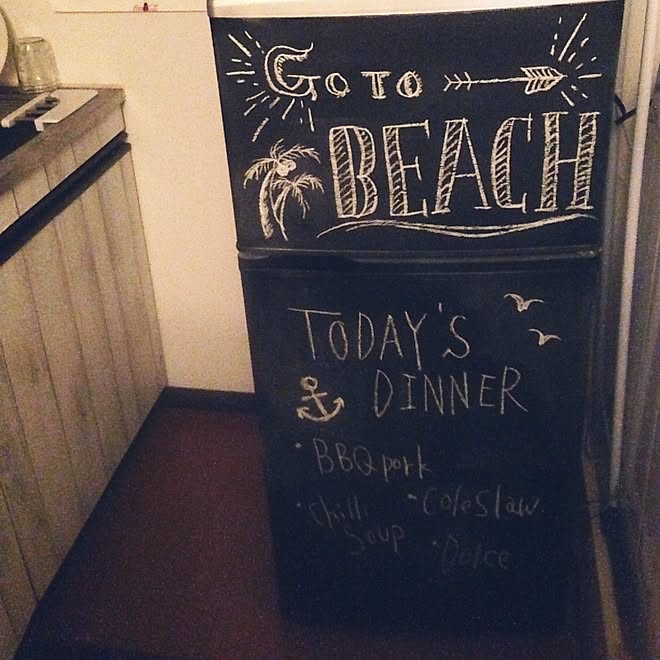 Go TO
BEACH
TODAY'S
DINNER
• BBQ pork
• Chilli • Coleslaw
Soup • Dolce